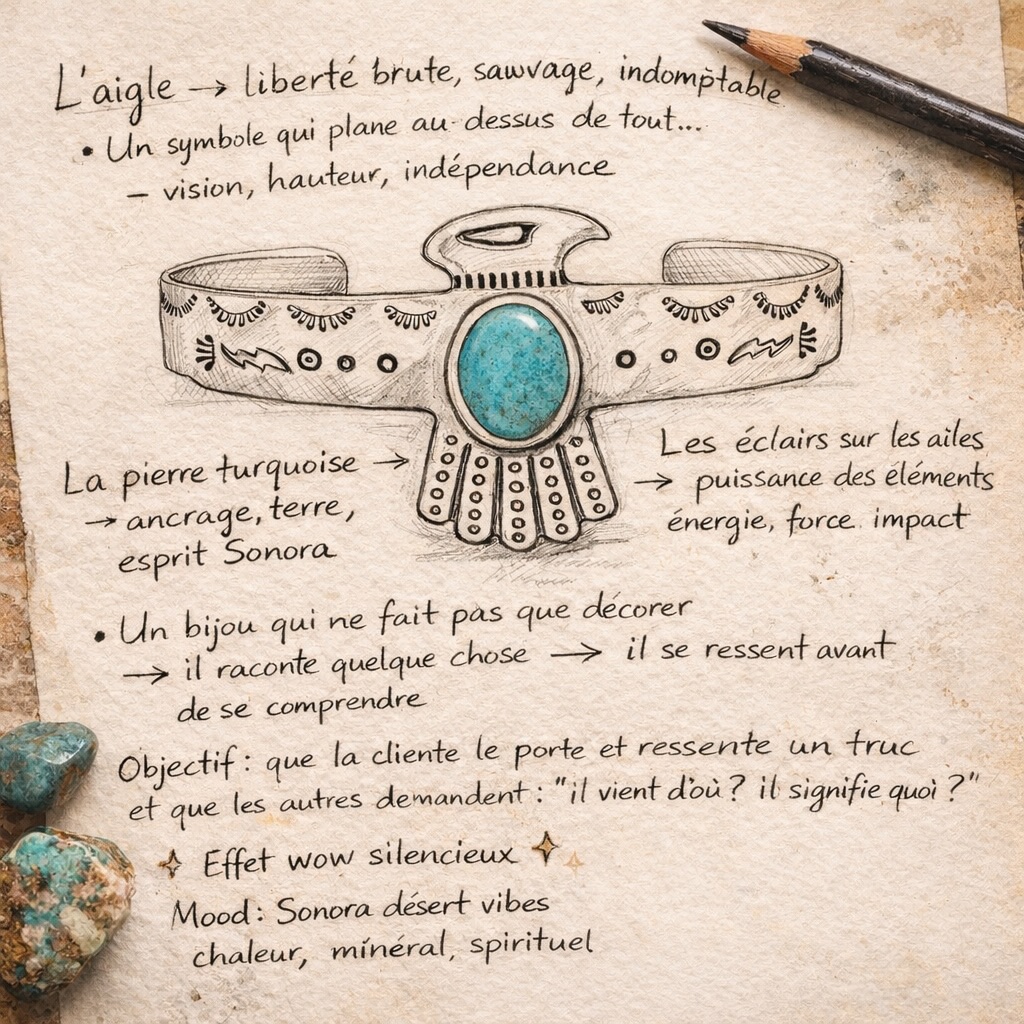 L'aigle → liberté brute, sauvage, indomptable
• Un symbole qui plane au-dessus de tout...
– vision, hauteur, indépendance
La pierre turquoise →
→ ancrage, terre,
esprit Sonora
Les éclairs sur les ailes
→ puissance des éléments
énergie, force impact
• Un bijou qui ne fait pas que décorer
→ il raconte quelque chose → il se ressent avant
de se comprendre
Objectif : que la cliente le porte et ressente un truc
et que les autres demandent : "il vient d'où ? il signifie quoi ?"
✧ Effet wow silencieux ✧
Mood : Sonora désert vibes
chaleur, minéral, spirituel